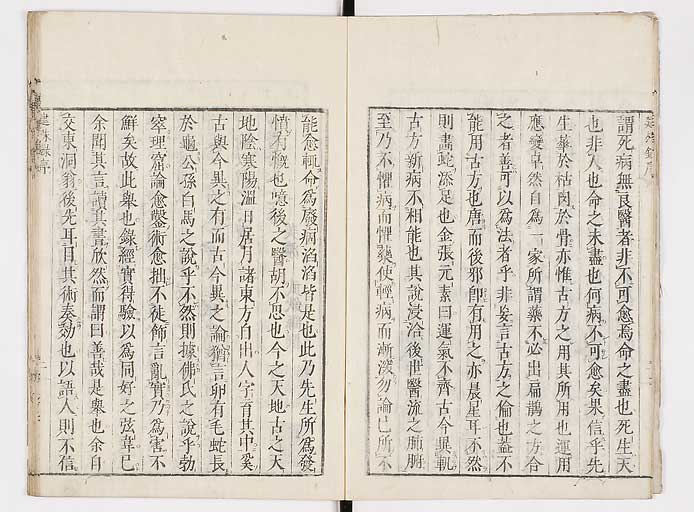 謂死病無良醫者非不可愈焉命之盡也死生天
也非人也命之未盡也何病不可愈矣果信乎先
生華於枯肉於骨亦惟古方之用其所用也運用
應變卓然自為一家所謂藥不必出扁鵲之方合
之者善可以為法者乎非妄言古方之倫也蓋不
能用古方也唐而後邪卽有用之亦晨星耳不然
則畵蛇添足也金張元素曰運氣不齊古今異軌
古方新病不相能也其說浸洽後世醫流之肺腑
至乃不懼病而懼藥使輕病而漸深勿論已所不
能愈輒命為廢痼滔滔皆是也此乃先生所為發
憤有慨也噫後之醫胡不思也今之天地古之天
地陰寒陽溫日居月諸東方自出人字育其中奚
古與今異之有而古今異之論猶言卵有毛蛇長
於龜公孫白馬之說乎不然則據佛氏之說乎勃
窣理窟論愈鑿術愈拙不徒飾言亂實乃為害不
鮮矣故此舉也錄經實得驗以為同好之弦韋已
余聞其言讀其書欣然而謂曰善哉是舉也余自
交東洞翁後先耳目其術奏効也以語人則不信
建珠錄序